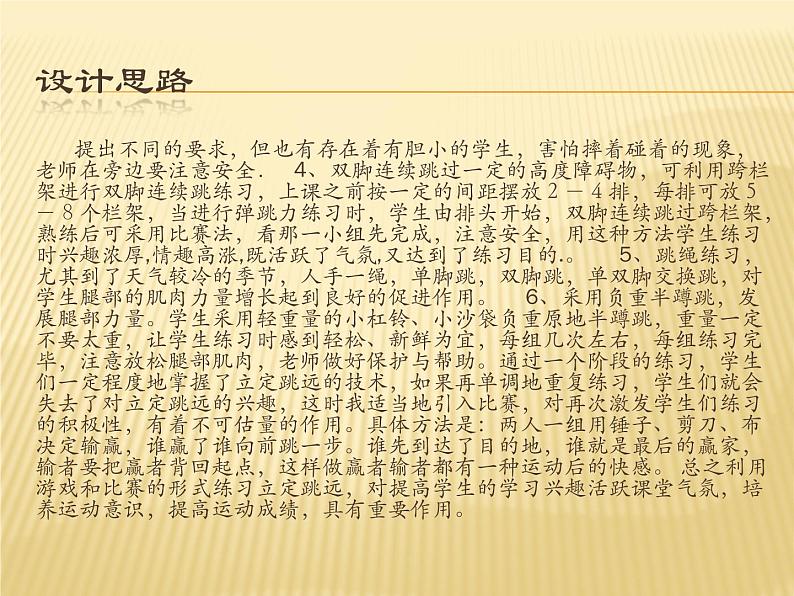 设计思路
提出不同的要求，但也有存在着有胆小的学生，害怕摔着碰着的现象，
老师在旁边要注意安全． 4、双脚连续跳过一定的高度障碍物，可利用跨栏
架进行双脚连续跳练习，上课之前按一定的间距摆放２－４排，每排可放５
－８个栏架，当进行弹跳力练习时，学生由排头开始，双脚连续跳过跨栏架，
熟练后可采用比赛法，看那一小组先完成，注意安全，用这种方法学生练习
时兴趣浓厚,情趣高涨,既活跃了气氛,又达到了练习目的.。 5、跳绳练习，
尤其到了天气较冷的季节，人手一绳，单脚跳，双脚跳，单双脚交换跳，对
学生腿部的肌肉力量增长起到良好的促进作用。 6、采用负重半蹲跳，发
展腿部力量。学生采用轻重量的小杠铃、小沙袋负重原地半蹲跳，重量一定
不要太重，让学生练习时感到轻松、新鲜为宜，每组几次左右，每组练习完
毕，注意放松腿部肌肉，老师做好保护与帮助。通过一个阶段的练习，学生
们一定程度地掌握了立定跳远的技术，如果再单调地重复练习，学生们就会
失去了对立定跳远的兴趣，这时我适当地引入比赛，对再次激发学生们练习
的积极性，有着不可估量的作用。具体方法是：两人一组用锤子、剪刀、布
决定输赢，谁赢了谁向前跳一步。谁先到达了目的地，谁就是最后的赢家，
输者要把赢者背回起点，这样做赢者输者都有一种运动后的快感。 总之利用
游戏和比赛的形式练习立定跳远，对提高学生的学习兴趣活跃课堂气氛，培
养运动意识，提高运动成绩，具有重要作用。